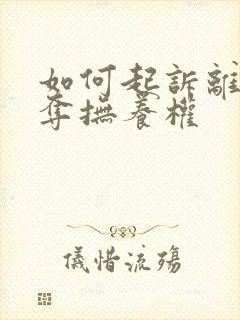 如何起訴離
奪撫養權
儀惜流殤